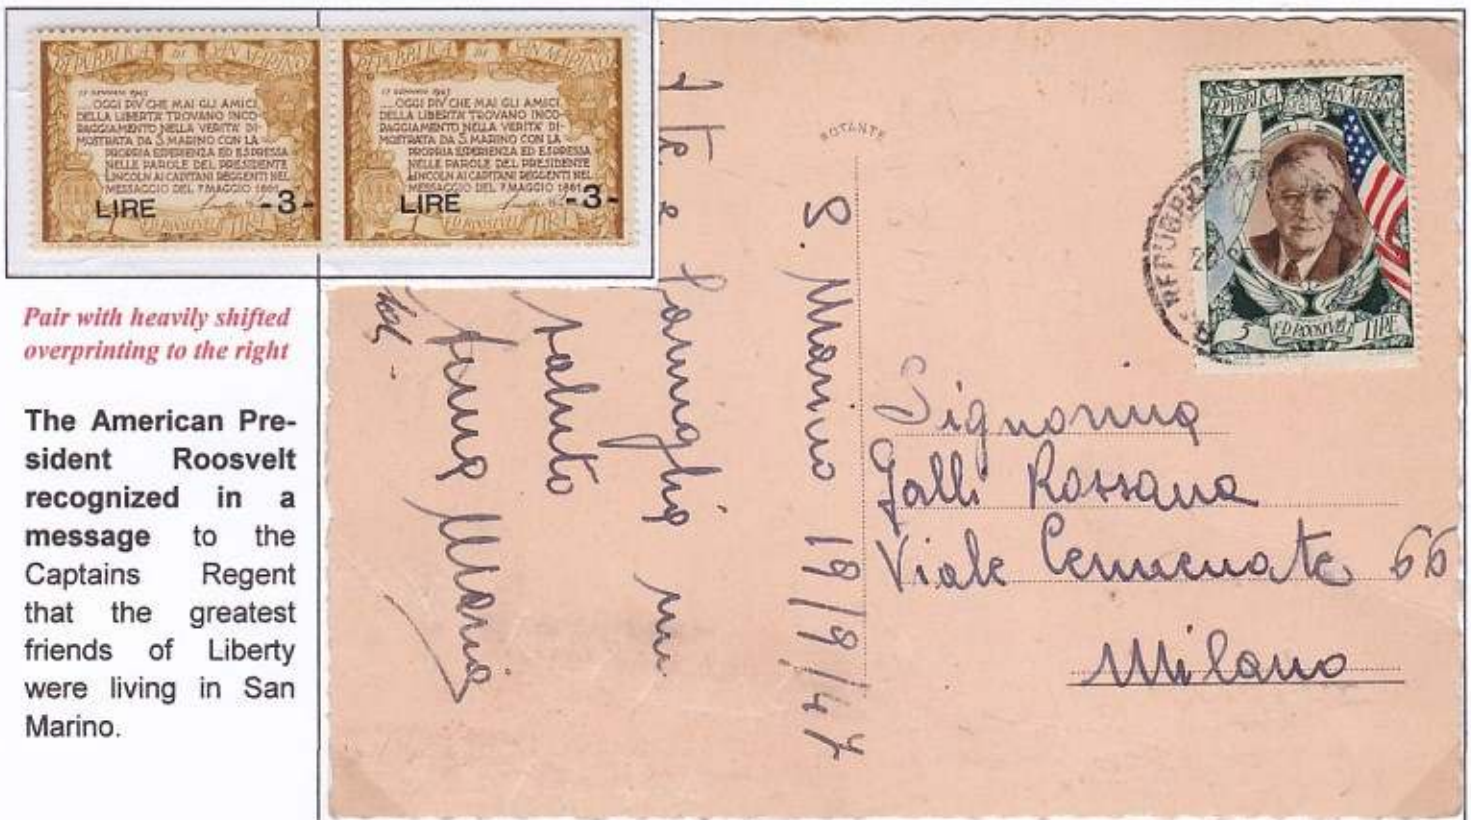 REPUBBLICA DI SAN MARINO
17 GENNAIO 1945
....OGGI PIV CHE MAI GLI AMICI
DELLA LIBERTA TROVANO INCO-
RAGGIAMENTO NELLA VERITA DI-
MOSTRATA DA S. MARINO CON LA
PROPRIA ESPERIENZA ED ESPRESSA
NELLE PAROLE DEL PRESIDENTE
LINCOLN AI CAPITANI REGGENTI NEL
MESSAGGIO DEL 7 MAGGIO 1861
LIRE -3-
F.D. ROOSEVELT
REPUBBLICA DI SAN MARINO
17 GENNAIO 1945
....OGGI PIV CHE MAI GLI AMICI
DELLA LIBERTA TROVANO INCO-
RAGGIAMENTO NELLA VERITA DI-
MOSTRATA DA S. MARINO CON LA
PROPRIA ESPERIENZA ED ESPRESSA
NELLE PAROLE DEL PRESIDENTE
LINCOLN AI CAPITANI REGGENTI NEL
MESSAGGIO DEL 7 MAGGIO 1861
LIRE -3-
F.D. ROOSEVELT
Pair with heavily shifted
overprinting to the right
The American Pre-
sident Roosvelt
recognized in a
message to the
Captains Regent
that the greatest
friends of Liberty
were living in San
Marino.
S. Marino 19/9/47
A te e
famiglia un
saluto
Maria
REPUBBLICA SAN MARINO
5 F.D. ROOSEVELT LIRE
Signorina
Galli Rossana
Viale Cermenate 66
Milano